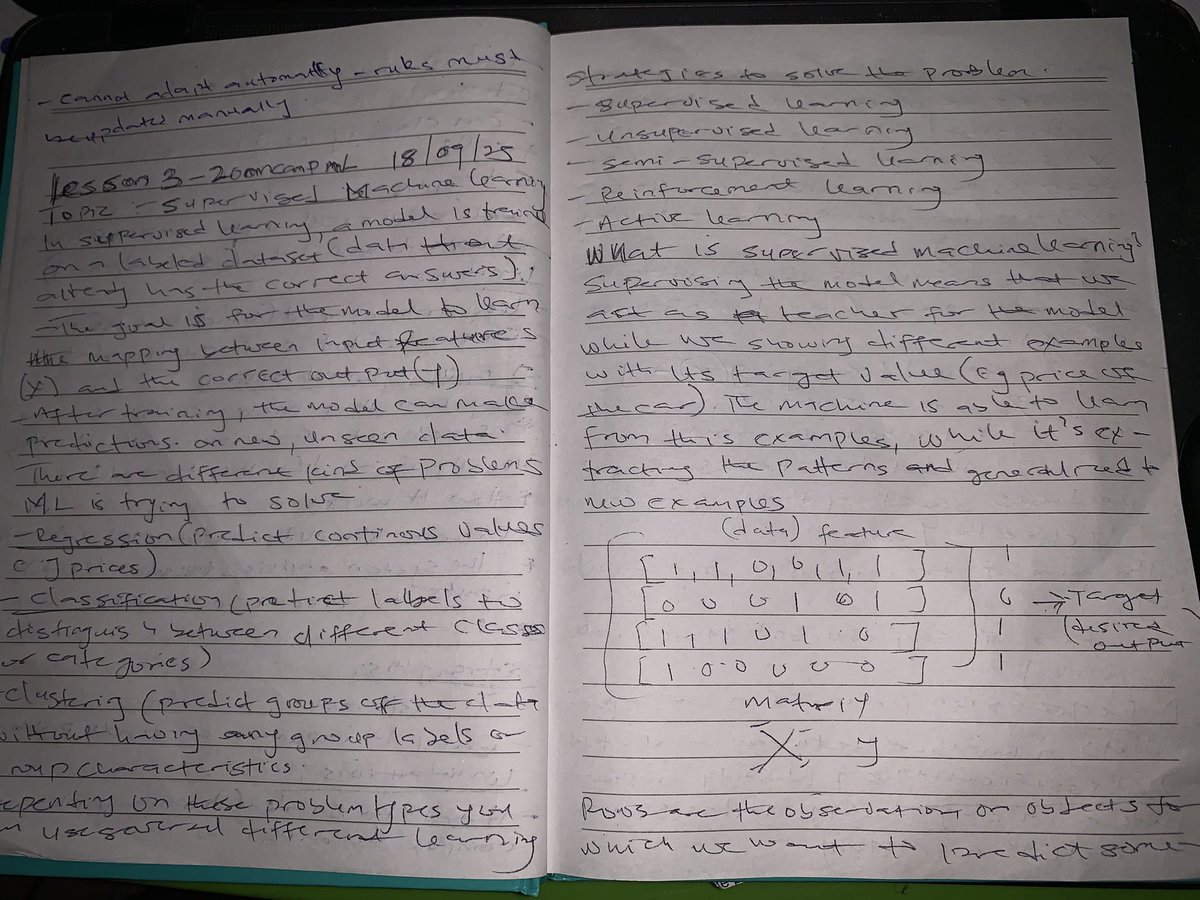 - cannot adapt automatlly - rules must
be updated manually
lesson 3 - zoomcamp ML 18/09/25
Topic :- Supervised Machine learning
In suppervised learning, a model is train
on a labeled dataset (data that
already has the correct answers).
- The goal is for the model to learn
the mapping between input features
(X) and the correct output (y)
- After training, the model can make
predictions on new, unseen data.
There are different kind of problems
ML is trying to solve
- Regression (predict continous values
eg prices)
- Classification (predict labels to
distinguish between different class
or categories)
- clusterig (predict groups off the data
without having any group labels or
roup characteristics.
epenting on these problem types you
n use several different learning
Strategies to solve the problem.
- Supervised learning
- Unsupervised learning
- semi-supervised learning
- Reinforcement learning
- Active learning
What is supervized machine learning?
Supervising the model means that we
act as teacher for the model
while we showing different examples
with its target value (eg price of
the car). The machine is able to learn
from this examples, while it's ex-
tracting the patterns and generalized to
new examples
(data) feature
[1, 1, 0, 0, 1, 1] 1
[0 0 0 1 0 1] 0 → Target
[1 1 1 0 1 0] 1 (desired output)
[1 0 0 0 0 0] 1
Matrix
X y
Rows are the observation or objects for
which we want to predict some-